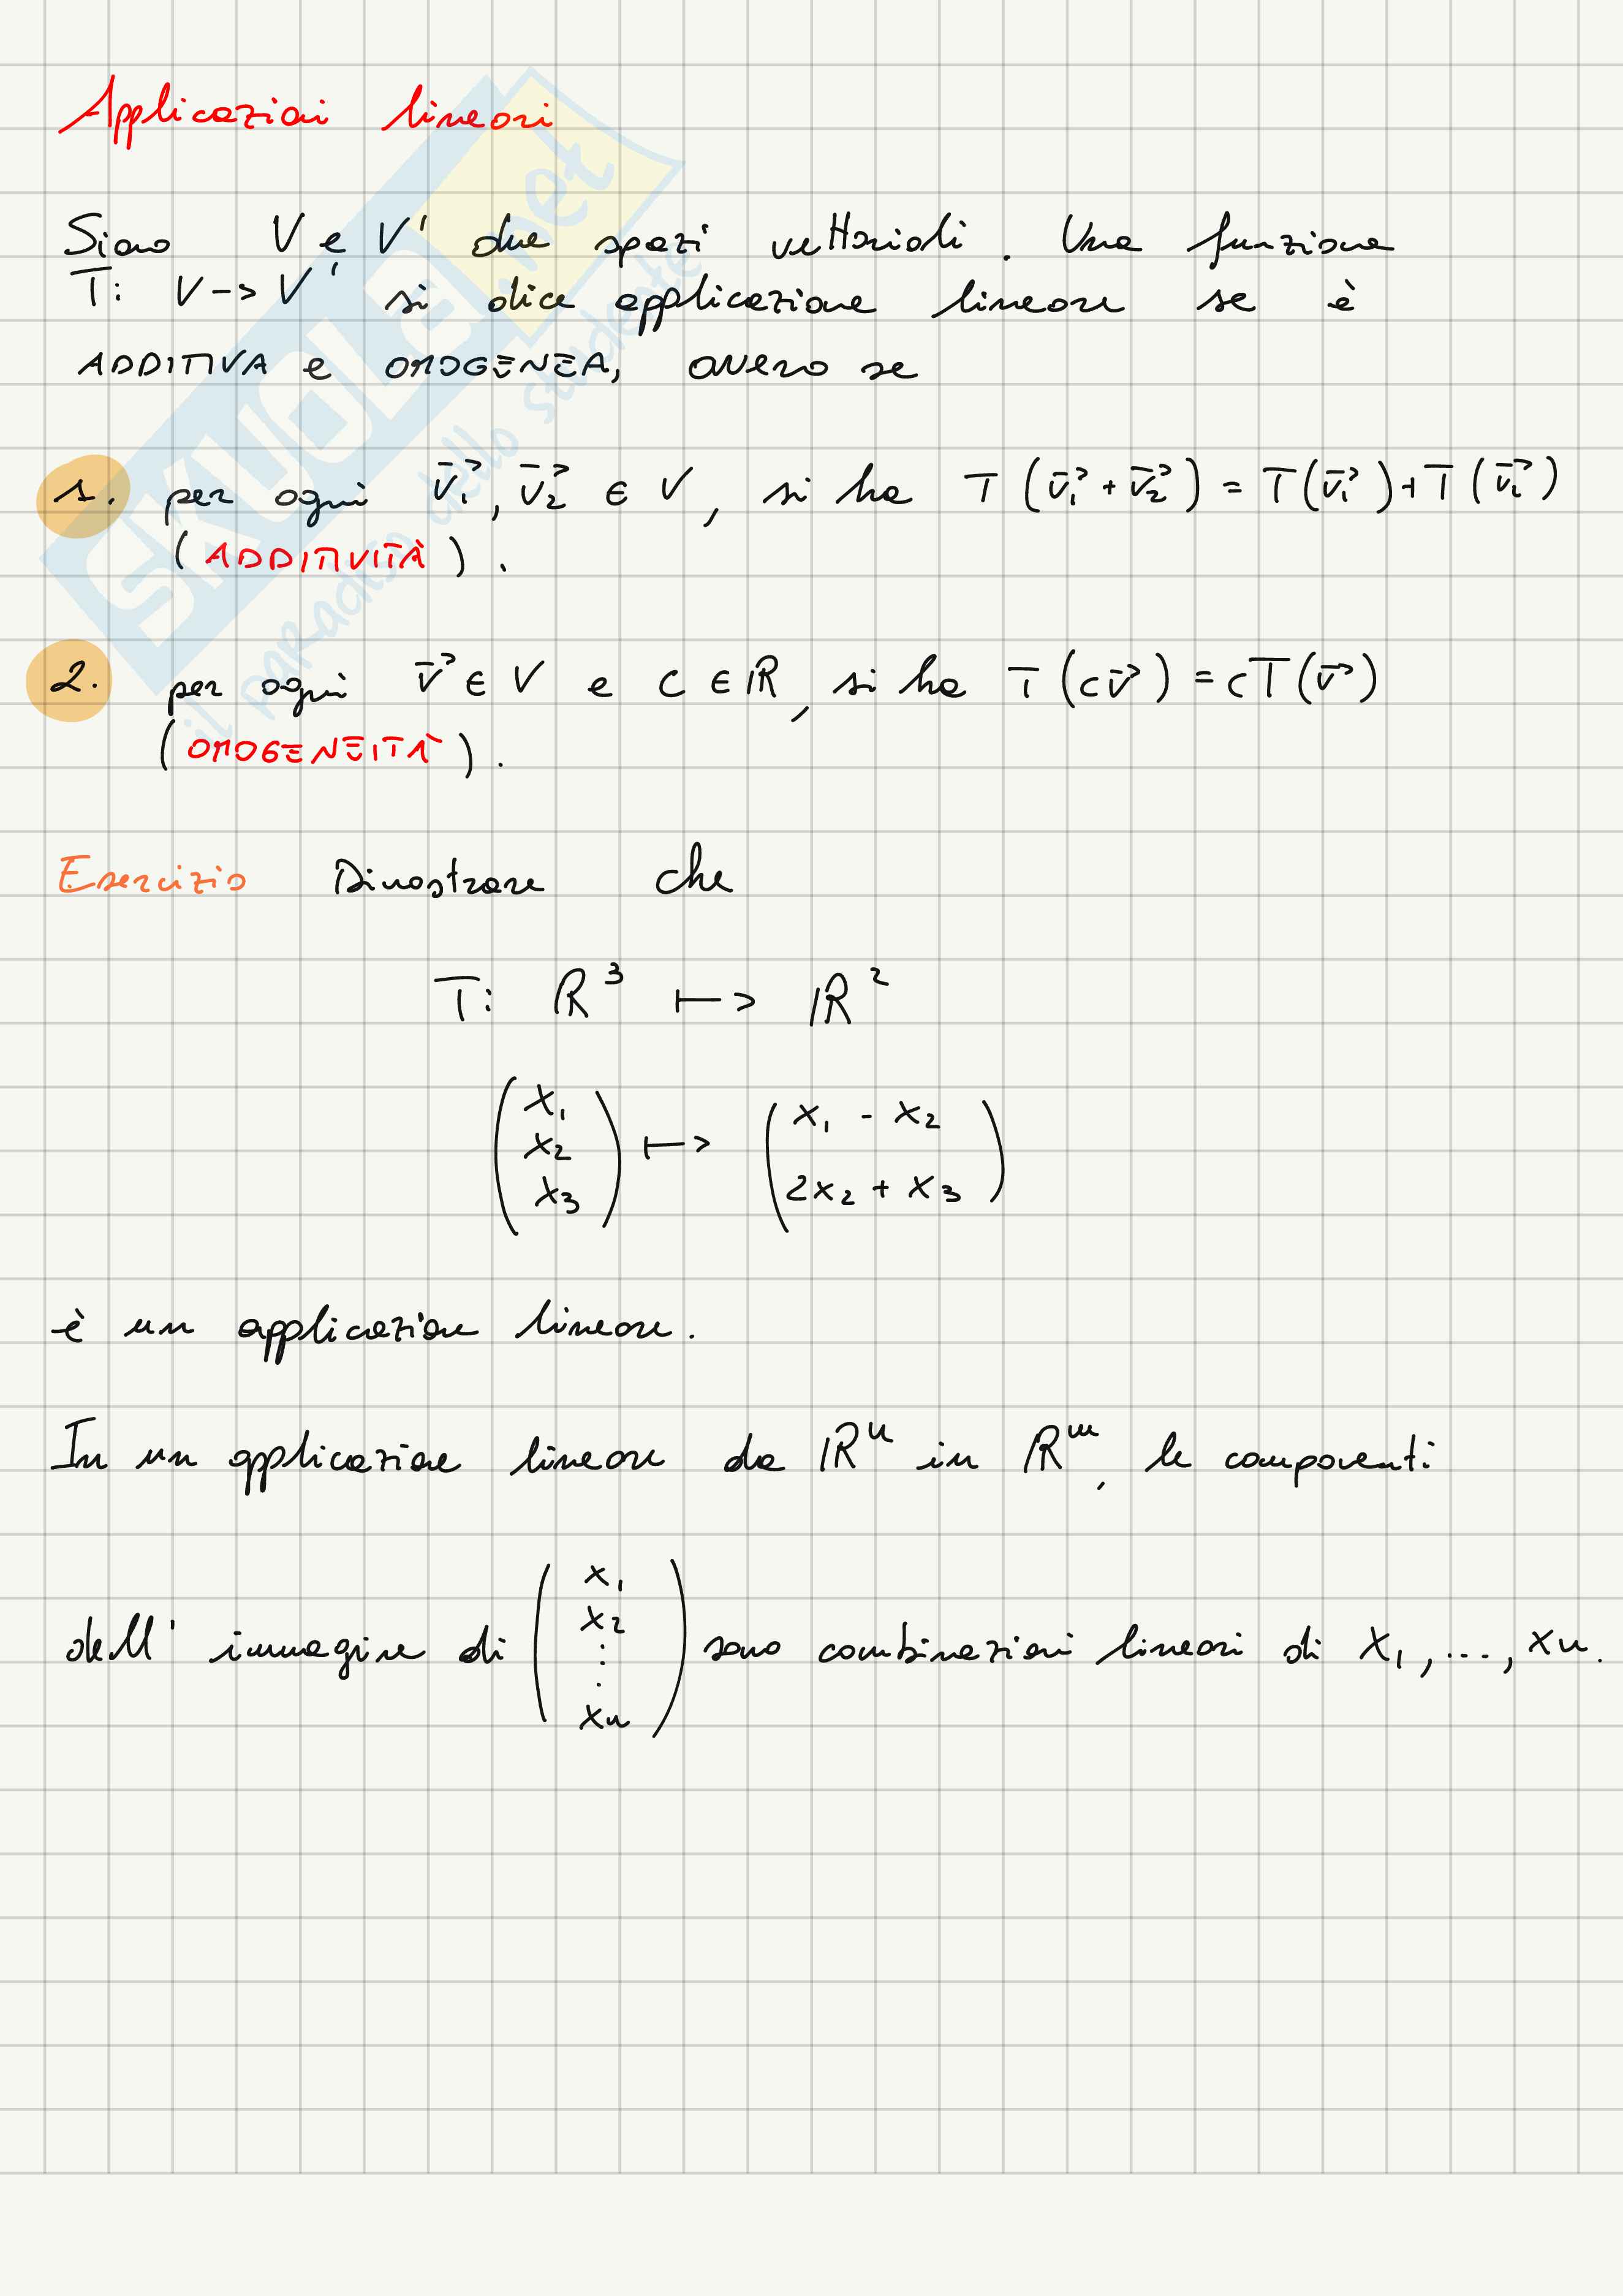 Applicazioni lineari
Siano V e V' due spazi vettoriali. Una funzione
T: V -> V' si dice applicazione lineare se è
ADDITIVA e OMOGENEA, ovvero se
1. per ogni v₁, v₂ ∈ V, si ha T(v₁ + v₂) = T(v₁) + T(v₂)
(ADDITIVITÀ).
2. per ogni v ∈ V e c ∈ ℝ, si ha T(cv) = cT(v)
(OMOGENEITÀ).
Esercizio Dimostrare che
T: ℝ³ ↦ ℝ²
(x₁ x₂ x₃) ↦ (x₁ - x₂ 2x₂ + x₃)
è un applicazione lineare.
In un applicazione lineare da ℝⁿ in ℝᵐ, le componenti
dell' immagine di (x₁ x₂ ⋮ xn) sono combinazioni lineari di x₁, ..., xn.
SKUOLA.net
il paradiso dello studente